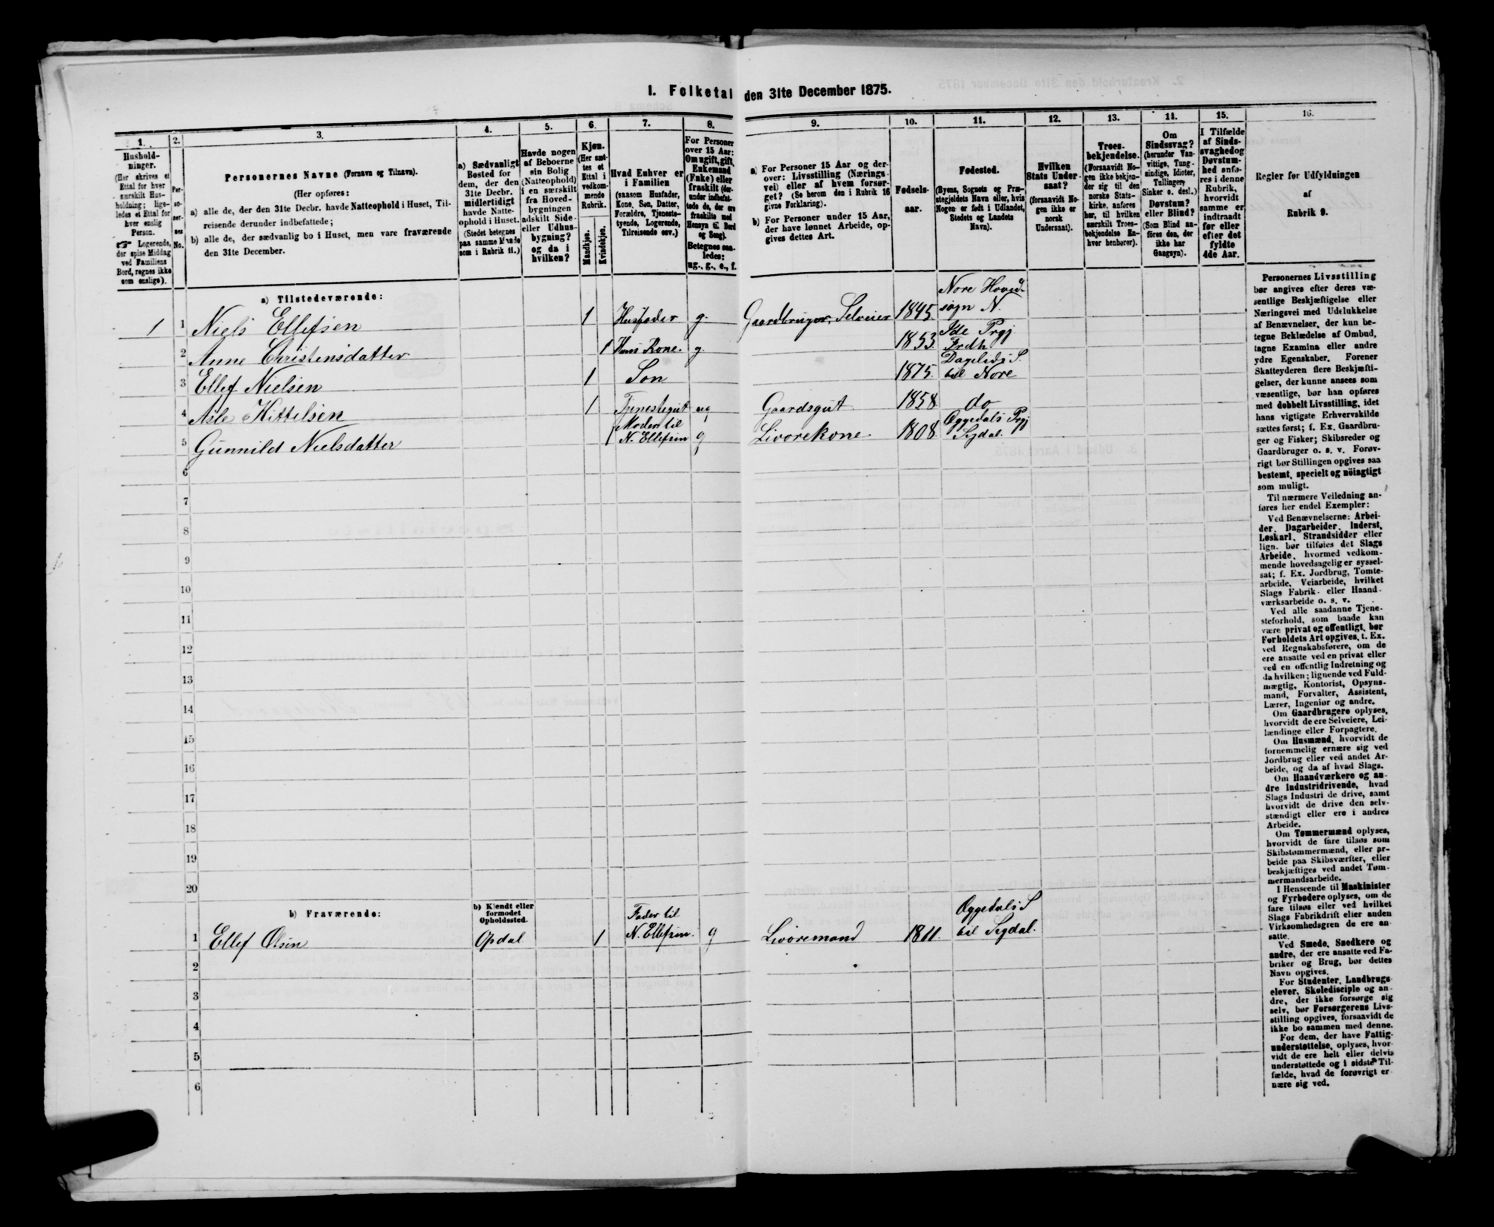 1. Folketal den 31te December 1875.
1.
Hushold-
ninger.
(Her skrives et
Ettal for hver
særskilt Hus-
holdning; lige-
ledes et Ettal for
hver enslig
Person.
☞ Logerende,
der spise Middag
ved Familiens
Bord, regnes ikke
som enslige).
2.
Per-
so-
ner-
nes
No.
3.
Personernes Navne (Fornavn og Tilnavn).
(Her opføres:
a) alle de, der den 31te Decbr. havde Natteophold i Huset, Til-
reisende derunder indbefattede;
b) alle de, der sædvanlig bo i Huset, men vare fraværende
den 31te December.
4.
a) Sædvanligt
Bosted for
dem, der den
31te Decbr.
midlertidigt
havde Natte-
ophold i Huset.
(Stedet betegnes
paa samme Maade
som i Rubrik 11.)
5.
Havde nogen
af Beboerne
sin Bolig
(Natteophold)
i en særskilt
fra Hoved-
bygningen
adskilt Side-
eller Udhus-
bygning?
og da i
hvilken?
6.
Kjøn.
(Her sæt-
tes et
Ettal i
vedkom-
mende
Rubrik.
Mandkjøn.
Kvindekjøn.
7.
Hvad Enhver er
i Familien
(saasom Husfader,
Kone, Søn, Datter,
Forældre, Tjeneste-
tyende, Logerende,
Tilreisende osv.)
8.
For Personer
over 15 Aar:
Om ugift, gift,
Enkemand
(Enke) eller
fraskilt (der-
under indbefat-
tede de, der ere
fraskilte med
Hensyn til Bord
og Seng).
Betegnes saa-
ledes:
ug., g., e., f.
9.
a) For Personer 15 Aar og der-
over: Livsstilling (Nærings-
vei) eller af hvem forsør-
get? (Se herom den i Rubrik 16
givne Forklaring).
b) For Personer under 15 Aar,
der have lønnet Arbeide, op-
gives dettes Art.
10.
Fødsels-
aar.
11.
Fødested.
(Byens, Sognets og Præ-
stegjeldets Navn eller, hvis
Nogen er født i Udlandet,
Stedets og Landets
Navn).
12.
Hvilken
Stats Under-
saat?
(forsaavidt No-
gen ikke er
norsk
Undersaat).
13.
Troes-
bekjendelse.
(Forsaavidt No-
gen ikke bekjen-
der sig til den
norske Stats-
kirke, anføres
her, til hvilken
særskilt Troes-
bekjendelse En-
hver henhører).
14.
Om
Sindssvag?
(herunder Van-
vittige, Tung-
sindige, Idioter,
Tullinger,
Sinker o. desl.).
Døvstum?
eller Blind?
(Som Blind an-
føres den, der
ikke har
Gangsyn).
15.
I Tilfælde
af Sinds-
svaghed og
Døvstum-
hed anfø-
res i denne
Rubrik,
hvorvidt
samme er
indtraadt
før eller
efter det
fyldte
4de Aar.
16.
Regler for Udfyldningen
af
Rubrik 9.
a) Tilstedeværende:
1 1 Niels Ellefsen 1 Husfader g. Gaardbruger, Selveier 1845 Nore Hovedsogn N.
2 Anne Christensdatter 1 Hans Kone. g. 1853. Ide Prgj Frdh.
3 Ellef Nielsen 1 Søn 1875. Dagelids S. til Nore
4 Asle Kittilsen 1 Tjenestegut ug Gaardsgut 1858 do
5 Gunnild Nielsdatter 1 Moder til N. Ellefsen g Livørekone. 1808 Oggedals Prgj Sigdal.
6
7
8
9
10
11
12
13
14
15
16
17
18
19
20
b) Fraværende:
b) Kjendt eller
formodet
Opholdssted.
1 Ellef Olsen Opdal 1 Fader til N. Ellefsen. g Livøremand 1811. Oggedals S til Sigdal.
2
3
4
5
6
Personernes Livsstilling
bør angives efter deres væ-
sentlige Beskjæftigelse eller
Næringsvei med Udelukkelse
af Benævnelser, der kun be-
tegne Beklædelse af Ombud,
tagne Examina eller andre
ydre Egenskaber. Forener
Skatteyderen flere Beskjæfti-
gelser, der kunne ansees som
væsentlige, bør han opføres
med dobbelt Livsstilling, idet
hans vigtigste Erhvervskilde
sættes først; f. Ex. Gaardbru-
ger og Fisker; Skibsreder og
Gaardbruger o. s. v. Forøv-
rigt bør Stillingen opgives saa
bestemt, specielt og nøiagtigt
som muligt.
Til nærmere Veiledning an-
føres her endel Exempler:
Ved Benævnelserne: Arbei-
der, Dagarbeider, Inderst,
Løskarl, Strandsidder eller
lign. bør tilføies det Slags
Arbeide, hvormed vedkom-
mende hovedsagelig er syssel-
sat; f. Ex. Jordbrug, Tomte-
arbeide, Veiarbeide, hvilket
Slags Fabrik- eller Haand-
værksarbeide o. s. v.
Ved alle saadanne Tjene-
steforhold, som baade kan
være privat og offentligt, bør
Forholdets Art opgives, t. Ex.
ved Regnskabsførere, om de
ere ansatte ved en privat eller
ved en offentlig Indretning og
da hvilken; lignende ved Fuld-
mægtig, Kontorist, Opsyns-
mand, Forvalter, Assistent,
Lærer, Ingeniør og andre.
Om Gaardbrugere oplyses,
hvorvidt de ere Selveiere, Lei-
lændinge eller Forpagtere.
Om Husmænd, hvorvidt de
fornemmelig ernære sig ved
Jordbrug eller ved andet Ar-
beide, og da af hvad Slags.
Om Haandværkere og an-
dre Industridrivende, hvad
Slags Industri de drive, samt
hvorvidt de drive den selv-
stændigt eller ere i andres
Arbeide.
Om Tømmermænd oplyses,
hvorvidt de fare tilsøs som
Skibstømmermænd, eller ar-
beide paa Skibsværfter, eller
beskjæftiges ved andet Tøm-
mermandsarbeide.
I Henseende til Maskinister
og Fyrbødere oplyses, om de
fare tilsøs eller ved hvilket
Slags Fabrikdrift eller anden
Virksomhedsgren de ere an-
satte.
Ved Smede, Snedkere og
andre, der ere ansatte ved Fa-
briker og Brug, bør dettes
Navn opgives.
For Studenter, Landbrugs-
elever, Skoledisciple og an-
dre, der ikke forsørge sig
selv, bør Forsørgerens Livs-
stilling opgives, forsaavidt de
ikke bo sammen med denne.
For dem, der have Fattig-
understøttelse, oplyses, hvor-
vidt de ere helt eller delvis
understøttede og i sidste Til-
fælde, hvad de forøvrigt er-
nære sig ved.